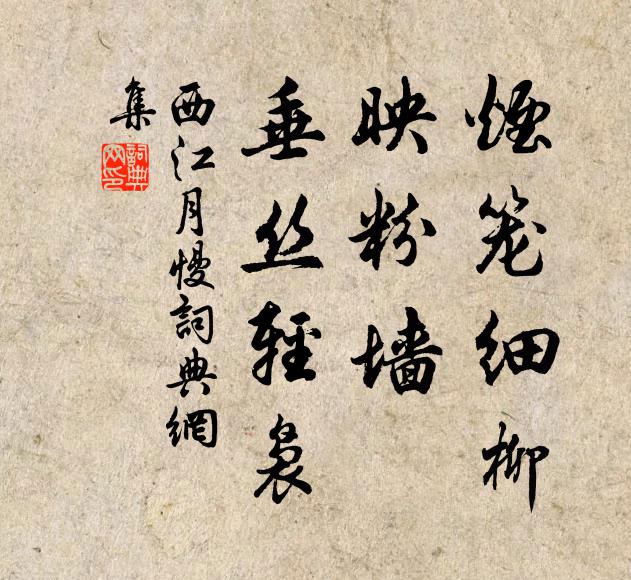 煙笼细柳
映粉墙
垂丝輕袅
西江月慢詞典網
集
詞典網印